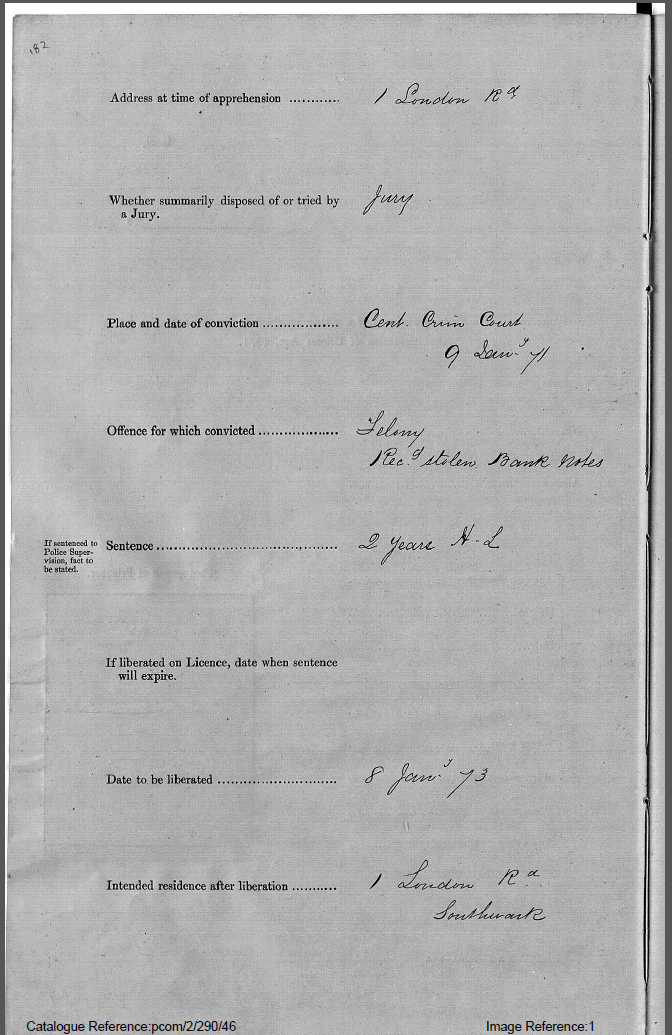 182
Address at time of apprehension ............ 1 London Rd
Whether summarily disposed of or tried by
a Jury.
Jury
Place and date of conviction .................. Cent. Crim Court
9 Jany 71
Offence for which convicted .................. Felony
Recd stolen Bank Notes
If sentenced to
Police Super-
vision, fact to
be stated.
Sentence .......................................... 2 years H-L
If liberated on Licence, date when sentence
will expire.
Date to be liberated ........................... 8 Jany 73
Intended residence after liberation ........... 1 London Rd
Southwark
Catalogue Reference:pcom/2/290/46 Image Reference:1